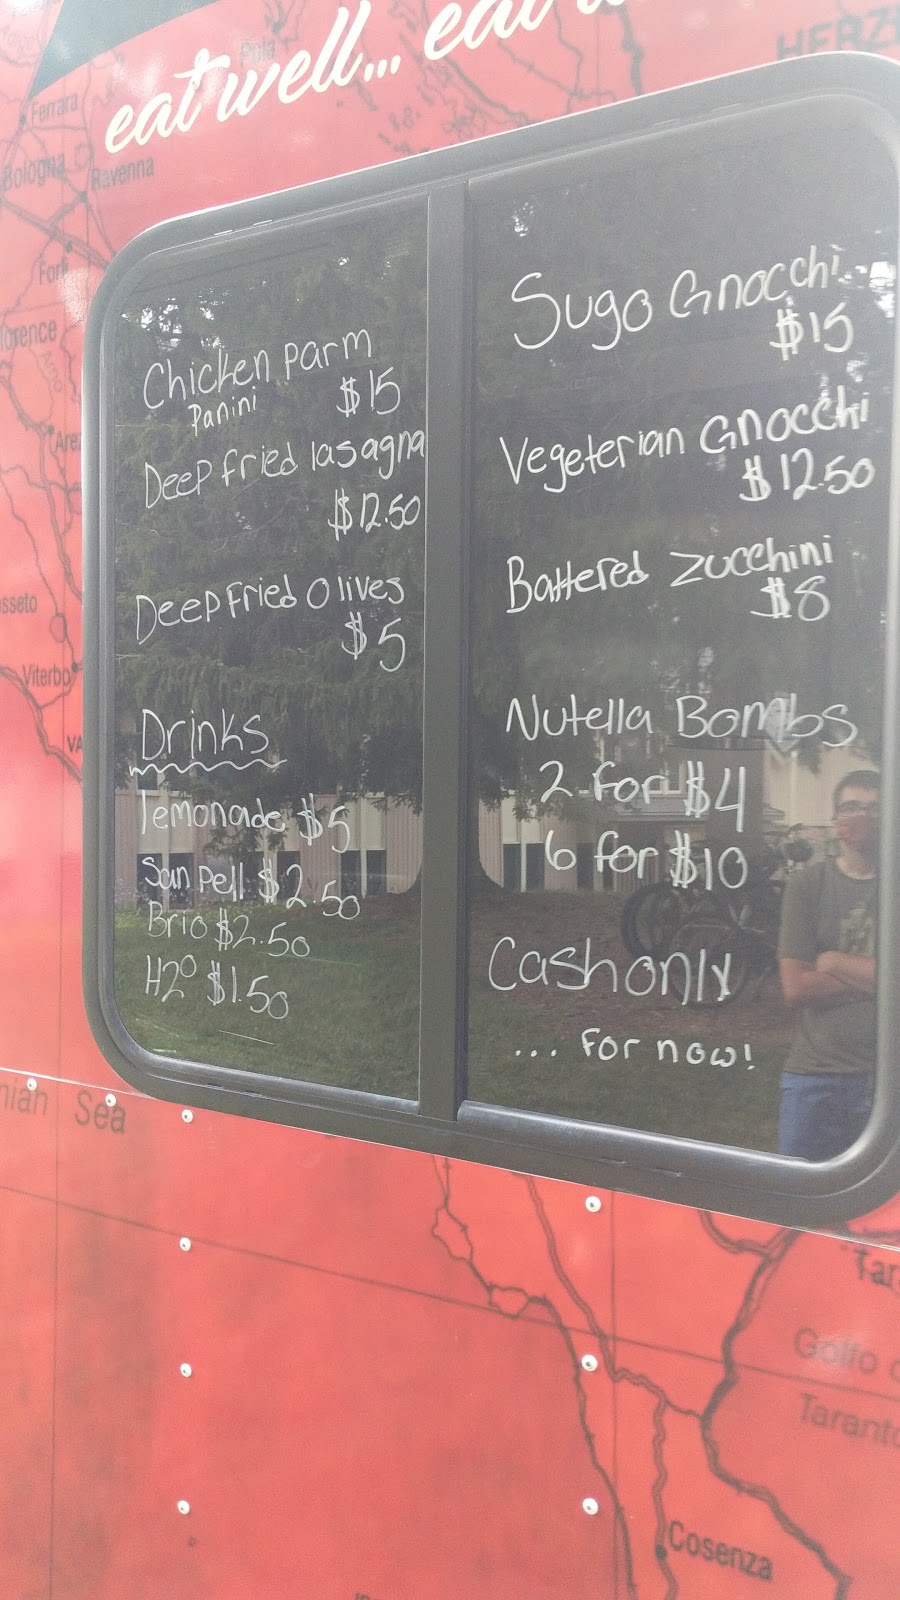 eat well... eat
Pula
HERZ
Ferrara
Bologna
Ravenna
Forlì
lorence
Arez
sseto
Viterbo
VA
Chicken parm
Panini $15
Deep fried lasagna
$12.50
Deep fried Olives
$5
Drinks
lemonade $5
San Pell $2.50
Brio $2.50
H2O $1.50
Sugo Gnocchi
$15
Vegeterian Gnocchi
$12.50
Battered Zucchini
$8
Nutella Bombs
2 for $4
6 for $10
Cash only
... for now!
nian Sea
Tar
Golfo
Taranto
Cosenza